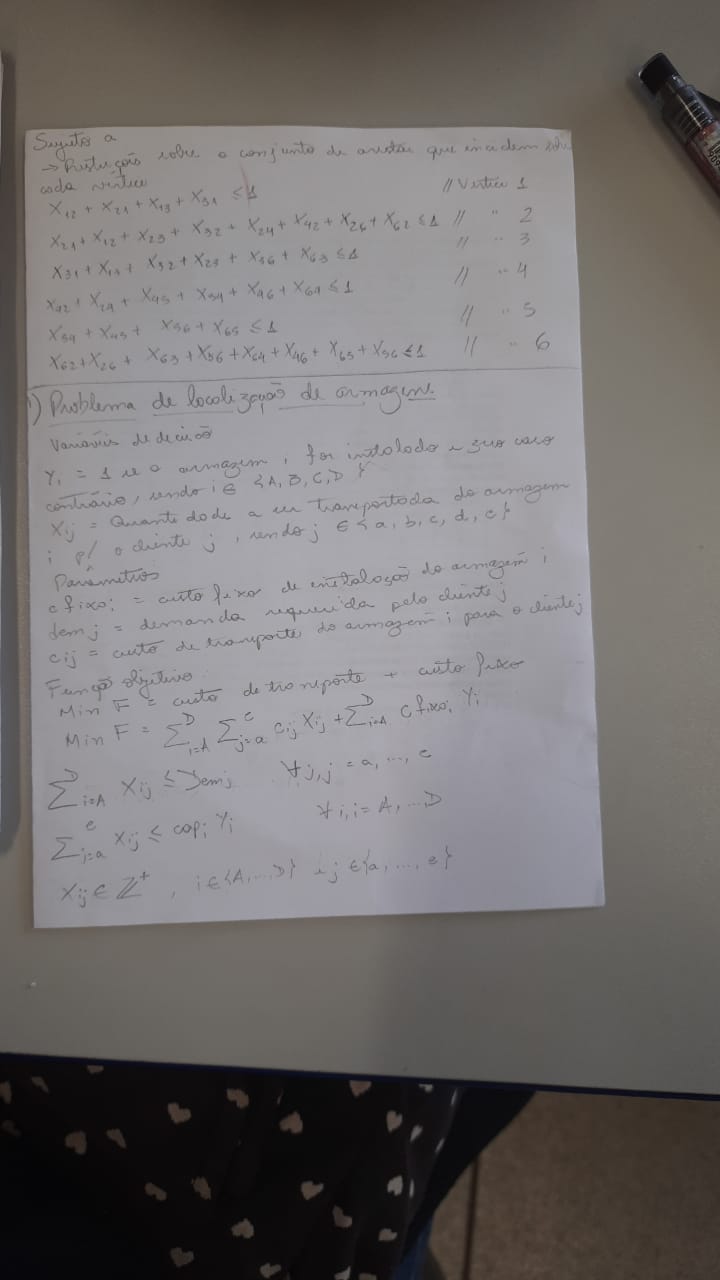 Sujeito a
→ Restrição sobre o conjunto de arestas que incidem sobre
cada vértice
X12 + X21 + X13 + X31 ≤ 1 // Vértice 1
X21 + X12 + X23 + X32 + X24 + X42 + X26 + X62 ≤ 1 // " 2
X31 + X13 + X32 + X23 + X36 + X63 ≤ 1 // " 3
X42 + X24 + X45 + X54 + X46 + X64 ≤ 1 // " 4
X54 + X45 + X56 + X65 ≤ 1 // " 5
X62 + X26 + X63 + X36 + X64 + X46 + X65 + X56 ≤ 1 // " 6
) Problema de localização de armagens
Variáveis de decisão
Yi = 1 se o armazem i for instalado e zero caso
contrário, sendo i ∈ {A, B, C, D}
Xij = Quantidade a ser transportada do armagem
i p/ o cliente j, sendo j ∈ {a, b, c, d, e}
Parâmetros
cfixoi = custo fixo de instalação do armazém i
demj = demanda requerida pelo cliente j
cij = custo de transporte do armazém i para o cliente j
Função objetivo
Min F = custo de transporte + custo fixo
Min F = ∑i=A^D ∑j=a^e cij Xij + ∑i=A^D cfixoi Yi
∑i=A^D Xij ≤ Demj ∀ j, j = a, ..., e
∑j=a^e Xij ≤ capi Yi ∀ i, i = A, ... D
Xij ∈ Z+, i ∈ {A, ..., D} e j ∈ {a, ..., e}